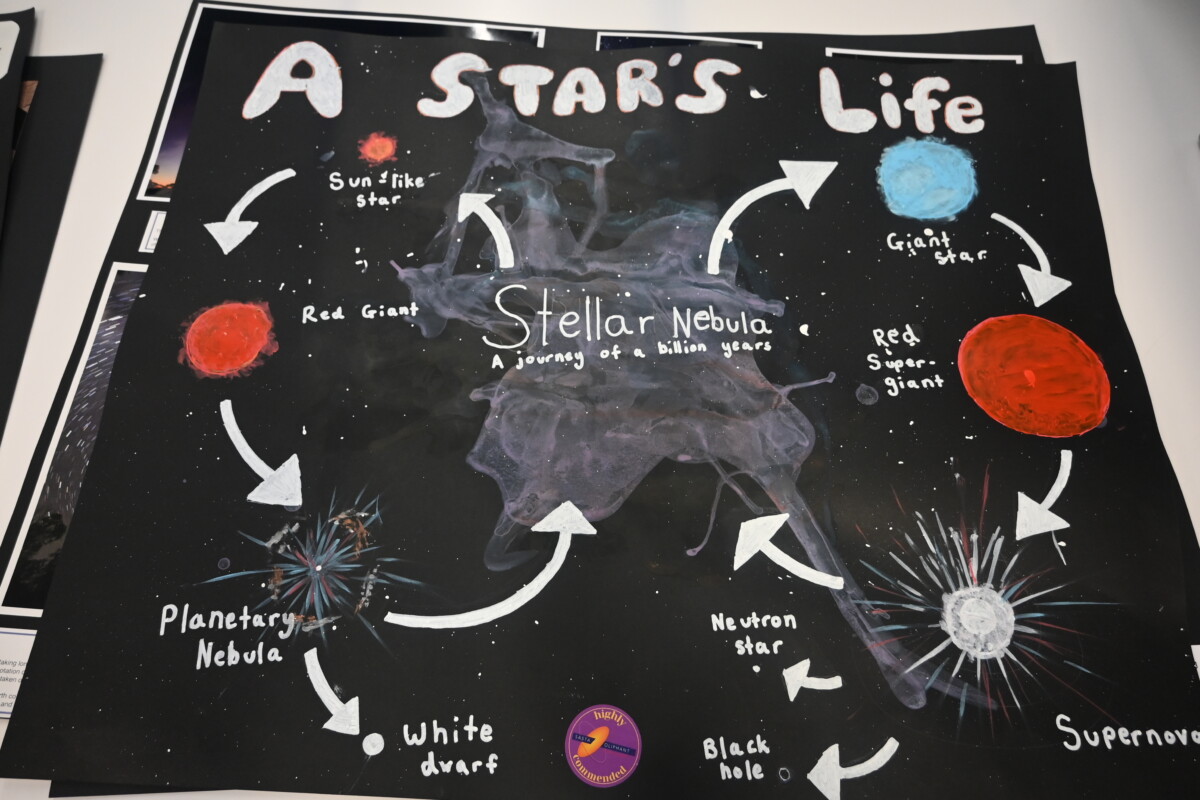 A STAR'S Life
Sun-like
star
Giant
star
Stellar Nebula
A journey of a billion years
Red Giant
Red
Super-
giant
Planetary
Nebula
Neutron
star
Supernova
White
dwarf
Black
hole
highly
commended